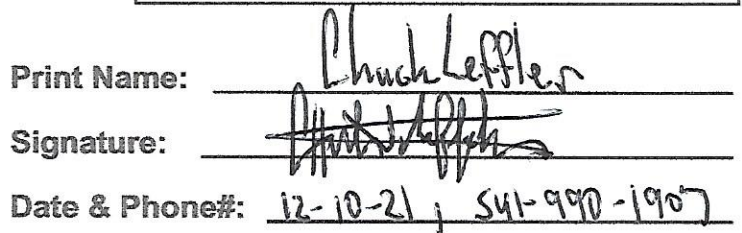 Print Name: Chuck Leffler
Signature:
Date & Phone#: 12-10-21, 541-990-1907